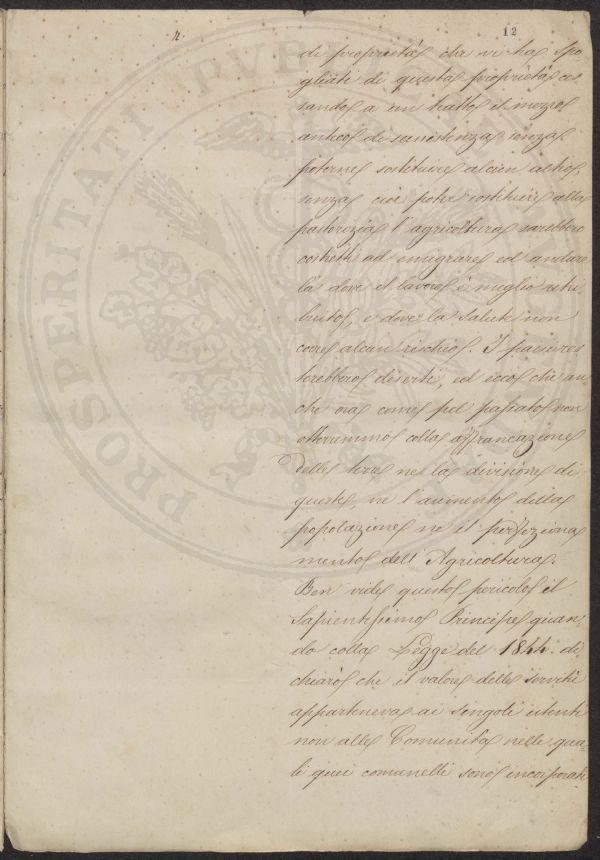 4
12
di proprietà che vi ha spo
gliati di questa proprietà ces
sando a un tratto il mezzo
antico di sussistenza, senza
poterne sostituire alcun altro,
senza cioè poter sostituire alla
pastorizia l'agricoltura sarebbero
costretti ad emigrare ed andare
là dove il lavoro è meglio retri
buito, e dove la salute non
corre alcun rischio. I paesi re
sterebbero deserti, ed ecco che an
che ora come pel passato non
otterremmo colla affrancazione
delle terre nella divisione di
queste, ne l'aumento della
popolazione ne il perfeziona
mento dell'Agricoltura.
Ben vide questo pericolo il
Sapientissimo Principe quan
do colla Legge del 1844. di
chiarò che il valore delle servitù
apparteneva ai singoli utenti
non alle Comunità nelle qua
li quei comunelli sono incorporati
PROSPERITATI PUBLICAE